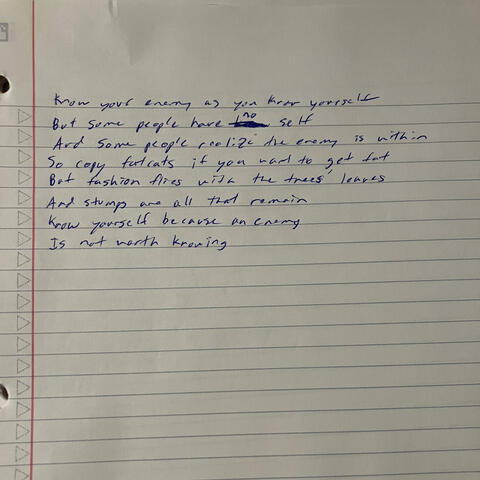 Know your enemy as you know yourself
But some people have no self
And some people realize the enemy is within
So copy fatcats if you want to get fat
But fashion flies with the trees' leaves
And stumps are all that remain
Know yourself because an enemy
Is not worth knowing